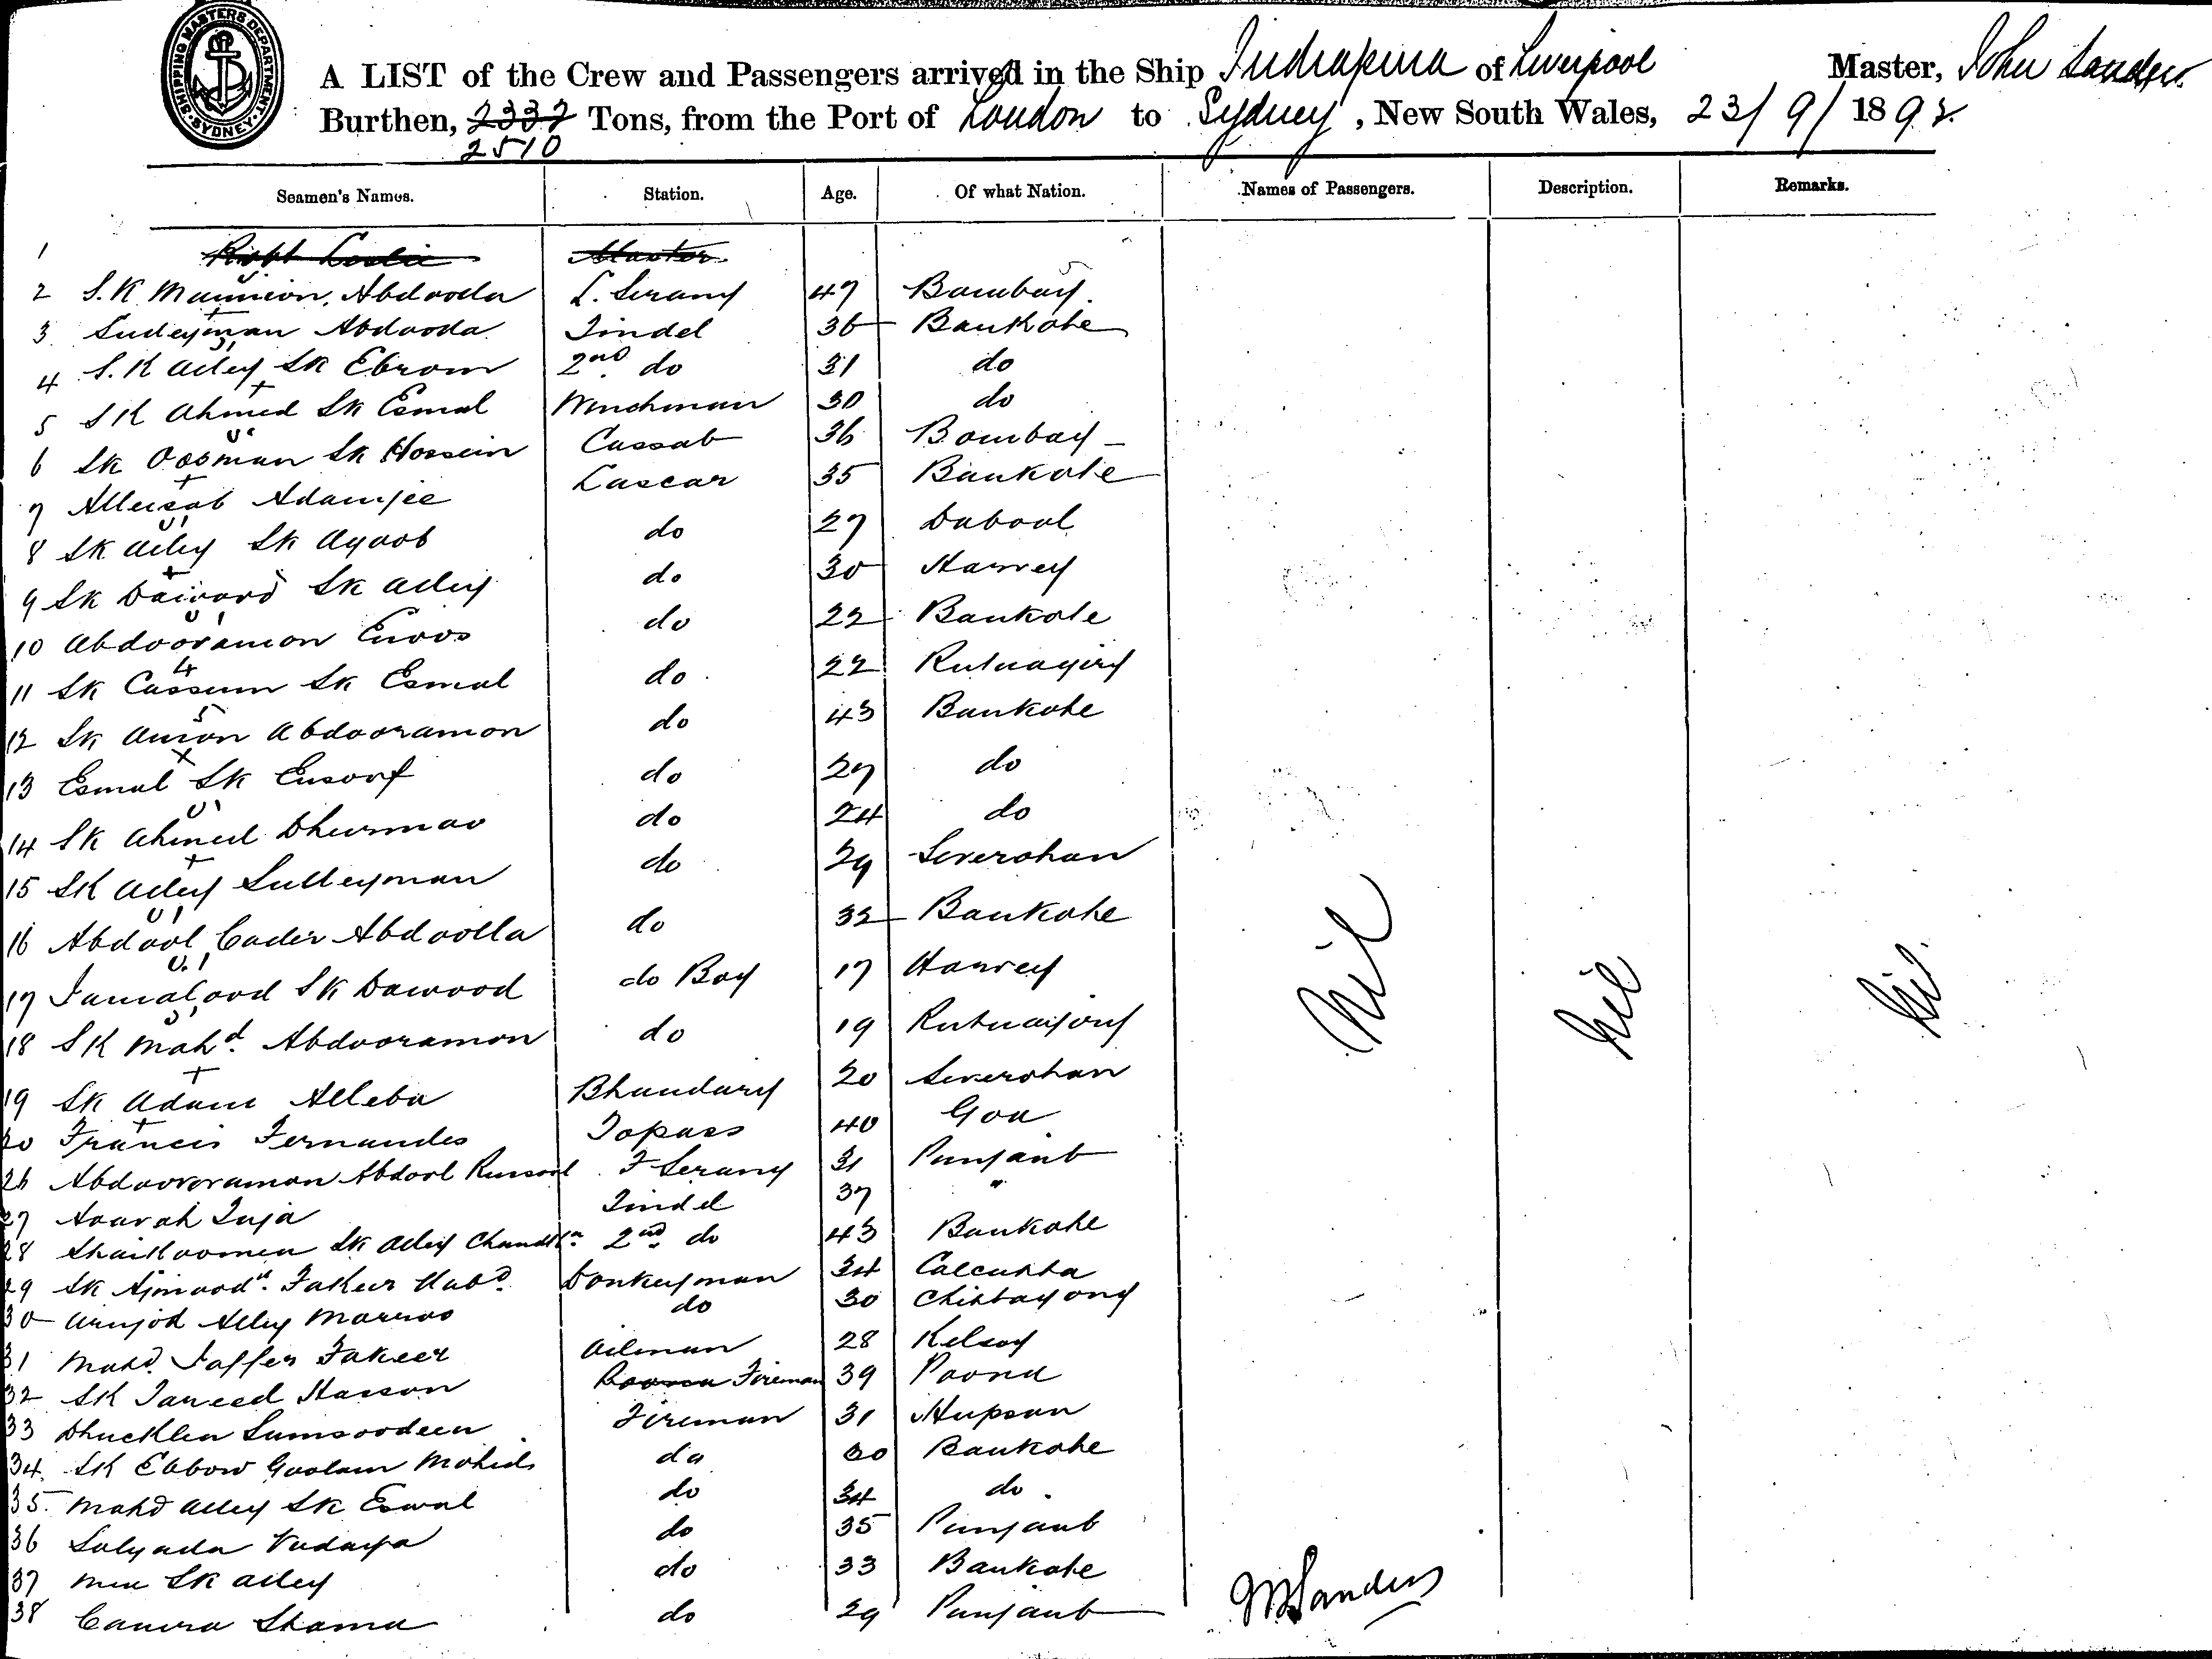 SHIPPING MASTERS DEPARTMENT
SYDNEY
A LIST of the Crew and Passengers arrived in the Ship Indrapura of Liverpool Master, John Sanders
Burthen, 2337 Tons, from the Port of London to Sydney, New South Wales, 23/9/1898.
2510
Seamen's Names. Station. Age. Of what Nation. Names of Passengers. Description. Remarks.
1 Robt Leslie Master
2 S.K. Abdoola L. Serang 47 Bombay.
3 Suleyman Abdoola Tindel 36 Bankote
4 S.K Alley Sk Ebrom 2nd do 31 do
5 SK Ahmed Sk Esmal Winchman 30 do
6 Sk Oosman Sk Hossein Cassab 36 Bombay
7 Alleisab Adamjee Lascar 35 Bankote
8 SK Alley Sk Ayoob do 27 Dabool
9 SK Dawood SK Alley do 30 Harney
10 Abdooramon do 22 Bankote
11 SK Cassum Sk Esmal do 22 Rutnagiry
12 Sk Amon Abdooramon do 43 Bankote
13 Esmal SK Eusoof do 27 do
14 SK Ahmed do 24 do
15 SK Alley Sulleyman do 29 Severohan
16 Abdool Cader Abdoolla do 32 Bankote
17 SK Dawood do Boy 17 Harney
18 SK Mahd. Abdooramon do 19 Rutnagiry
19 SK Adam Alleba Bhundary 20 Severohan
20 Francis Fernandes Topass 40 Goa
26 Abdooreramon Abdool F Serang 31 Punjaub
27 Tindel 37 "
28 Sk Alley 2nd do 43 Bankote
29 SK Donkeyman 34 Calcutta
30 Alley do 30 Chittagong
31 Mahd. Jaffer Fakeer Oilman 28
32 SK Hasson Fireman 39 Poona
33 Sumsoodeen Fireman 31
34 SK Goolam Mohid do 30 Bankote
35 Mahd Alley SK do 34 do
36 do 35 Punjaub
37 SK Alley do 33 Bankote
38 do 29 Punjaub
Nil Nil Nil
Sanders